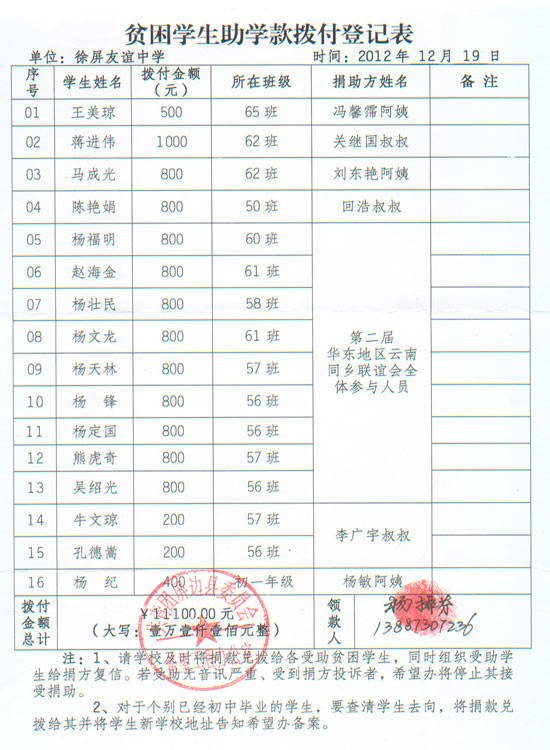 贫困学生助学款拨付登记表
单位：徐屏友谊中学 时间：2012年 12月 19日
序号 学生姓名 拨付金额（元） 所在班级 捐助方姓名 备注
01 王美琼 500 65班 冯馨霈阿姨
02 蒋进伟 1000 62班 关继国叔叔
03 马成光 800 62班 刘东艳阿姨
04 陈艳娟 800 50班 回浩叔叔
05 杨福明 800 60班
06 赵海金 800 61班
07 杨壮民 800 58班
08 杨文龙 800 61班
第二届
华东地区云南
同乡联谊会全
体参与人员
09 杨天林 800 57班
10 杨锋 800 56班
11 杨定国 800 56班
12 熊虎奇 800 57班
13 吴绍光 800 56班
14 牛文琼 200 57班
李广宇叔叔
15 孔德嵩 200 56班
16 杨纪 400 初一年级 杨敏阿姨
拨付金额总计
￥11100.00元
（大写：壹万壹仟壹佰元整）
领款人
13887307236
屏边县委员会
注：1、请学校及时将捐款兑拨给各受助贫困学生，同时组织受助学
生给捐方复信。若受助无音讯严重、受到捐方投诉者，希望办将停止其接
受捐助。
2、对于个别已经初中毕业的学生，要查清学生去向，将捐款兑
拨给其并将学生新学校地址告知希望办备案。